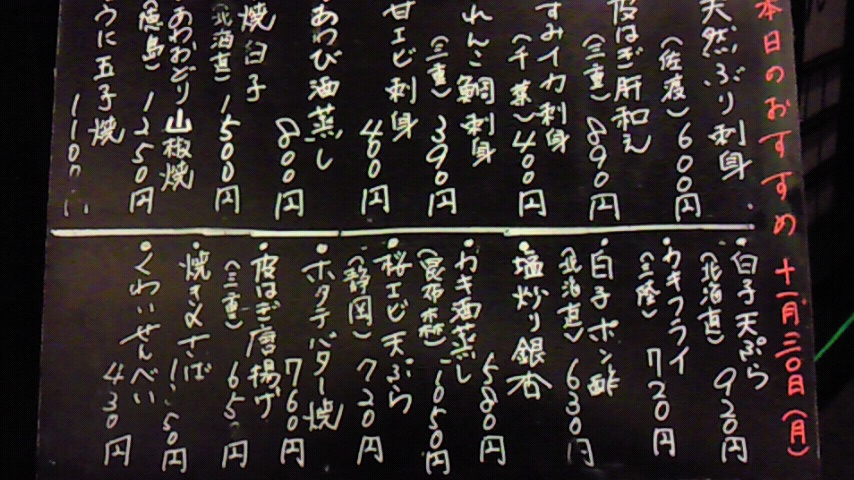 本日のおすすめ 十一月三〇日(月)
天然ぶり刺身
(佐渡) 600円
皮はぎ肝和え
(三重) 890円
すみイカ刺身
(千葉) 400円
れんこ鯛刺身
(三重) 390円
甘エビ刺身
400円
あわび酒蒸し
800円
焼白子
(北海道) 1500円
あわおどり山椒焼
(徳島) 1250円
うに玉子焼
1100
・白子天ぷら
(北海道) 920円
・カキフライ
(三陸) 720円
・白子ポン酢
(北海道) 630円
・塩炒り銀杏
580円
・カキ酒蒸し
(昆布森) 1050円
・桜エビ天ぷら
(静岡) 720円
・ホタテバター焼
760円
・皮はぎ唐揚げ
(三重) 650円
・焼き〆さば
50円
・くわいせんべい
430円